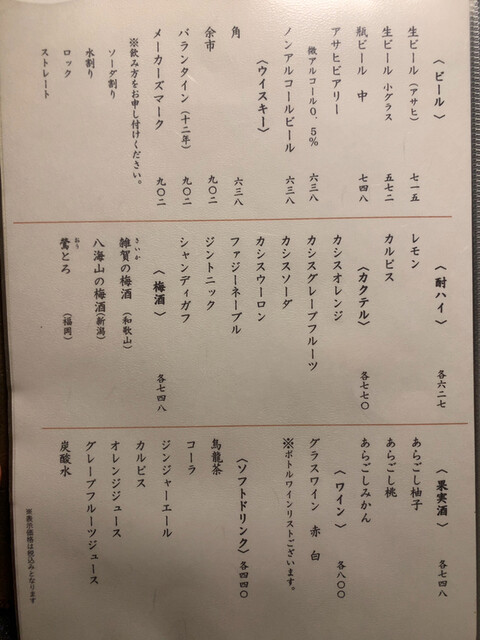 〈ビール〉
生ビール（アサヒ） 七一五
生ビール 小グラス 五七二
瓶ビール 中 七四八
アサヒビアリー
微アルコール0.5% 六三八
ノンアルコールビール 六三八
〈ウイスキー〉
角 六三八
余市 九〇二
バランタイン（十二年） 九〇二
メーカーズマーク 九〇二
※飲み方をお申し付けください。
ソーダ割り
水割り
ロック
ストレート
〈酎ハイ〉 各六二七
レモン
カルピス
〈カクテル〉 各七七〇
カシスオレンジ
カシスグレープフルーツ
カシスソーダ
カシスウーロン
ファジーネーブル
ジントニック
シャンディガフ
〈梅酒〉 各七四八
雑賀の梅酒（和歌山）
さいか
八海山の梅酒（新潟）
鶯とろ（福岡）
おう
〈果実酒〉 各七四八
あらごし柚子
あらごし桃
あらごしみかん
〈ワイン〉 各八〇〇
グラスワイン 赤 白
※ボトルワインリストございます。
〈ソフトドリンク〉 各四四〇
烏龍茶
コーラ
ジンジャーエール
カルピス
オレンジジュース
グレープフルーツジュース
炭酸水
※表示価格は税込みとなります